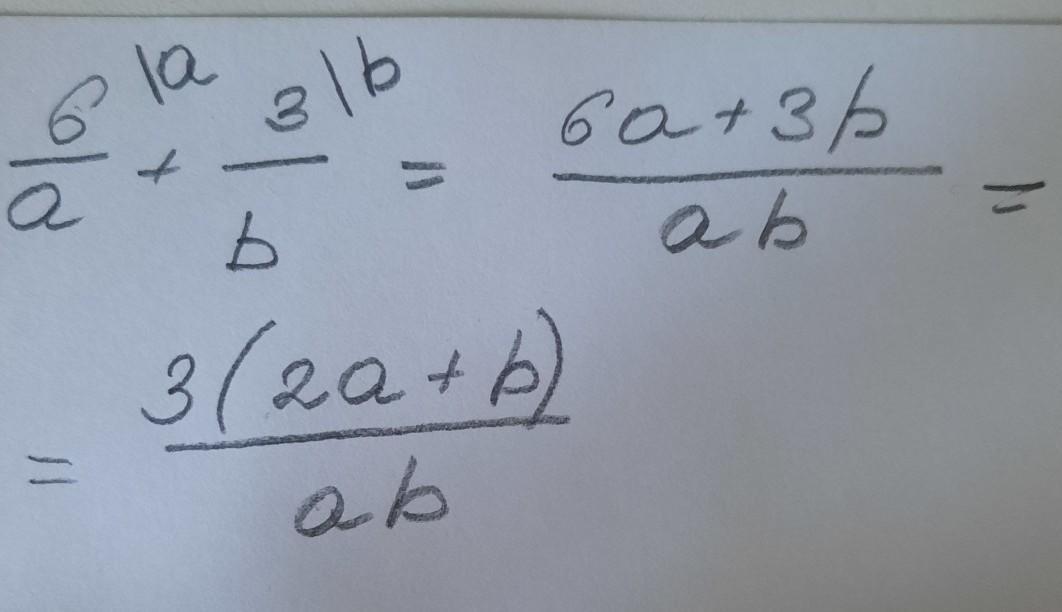 6/a \a + 3/b \b = (6a+3b)/(ab) =
= 3(2a+b)/(ab)